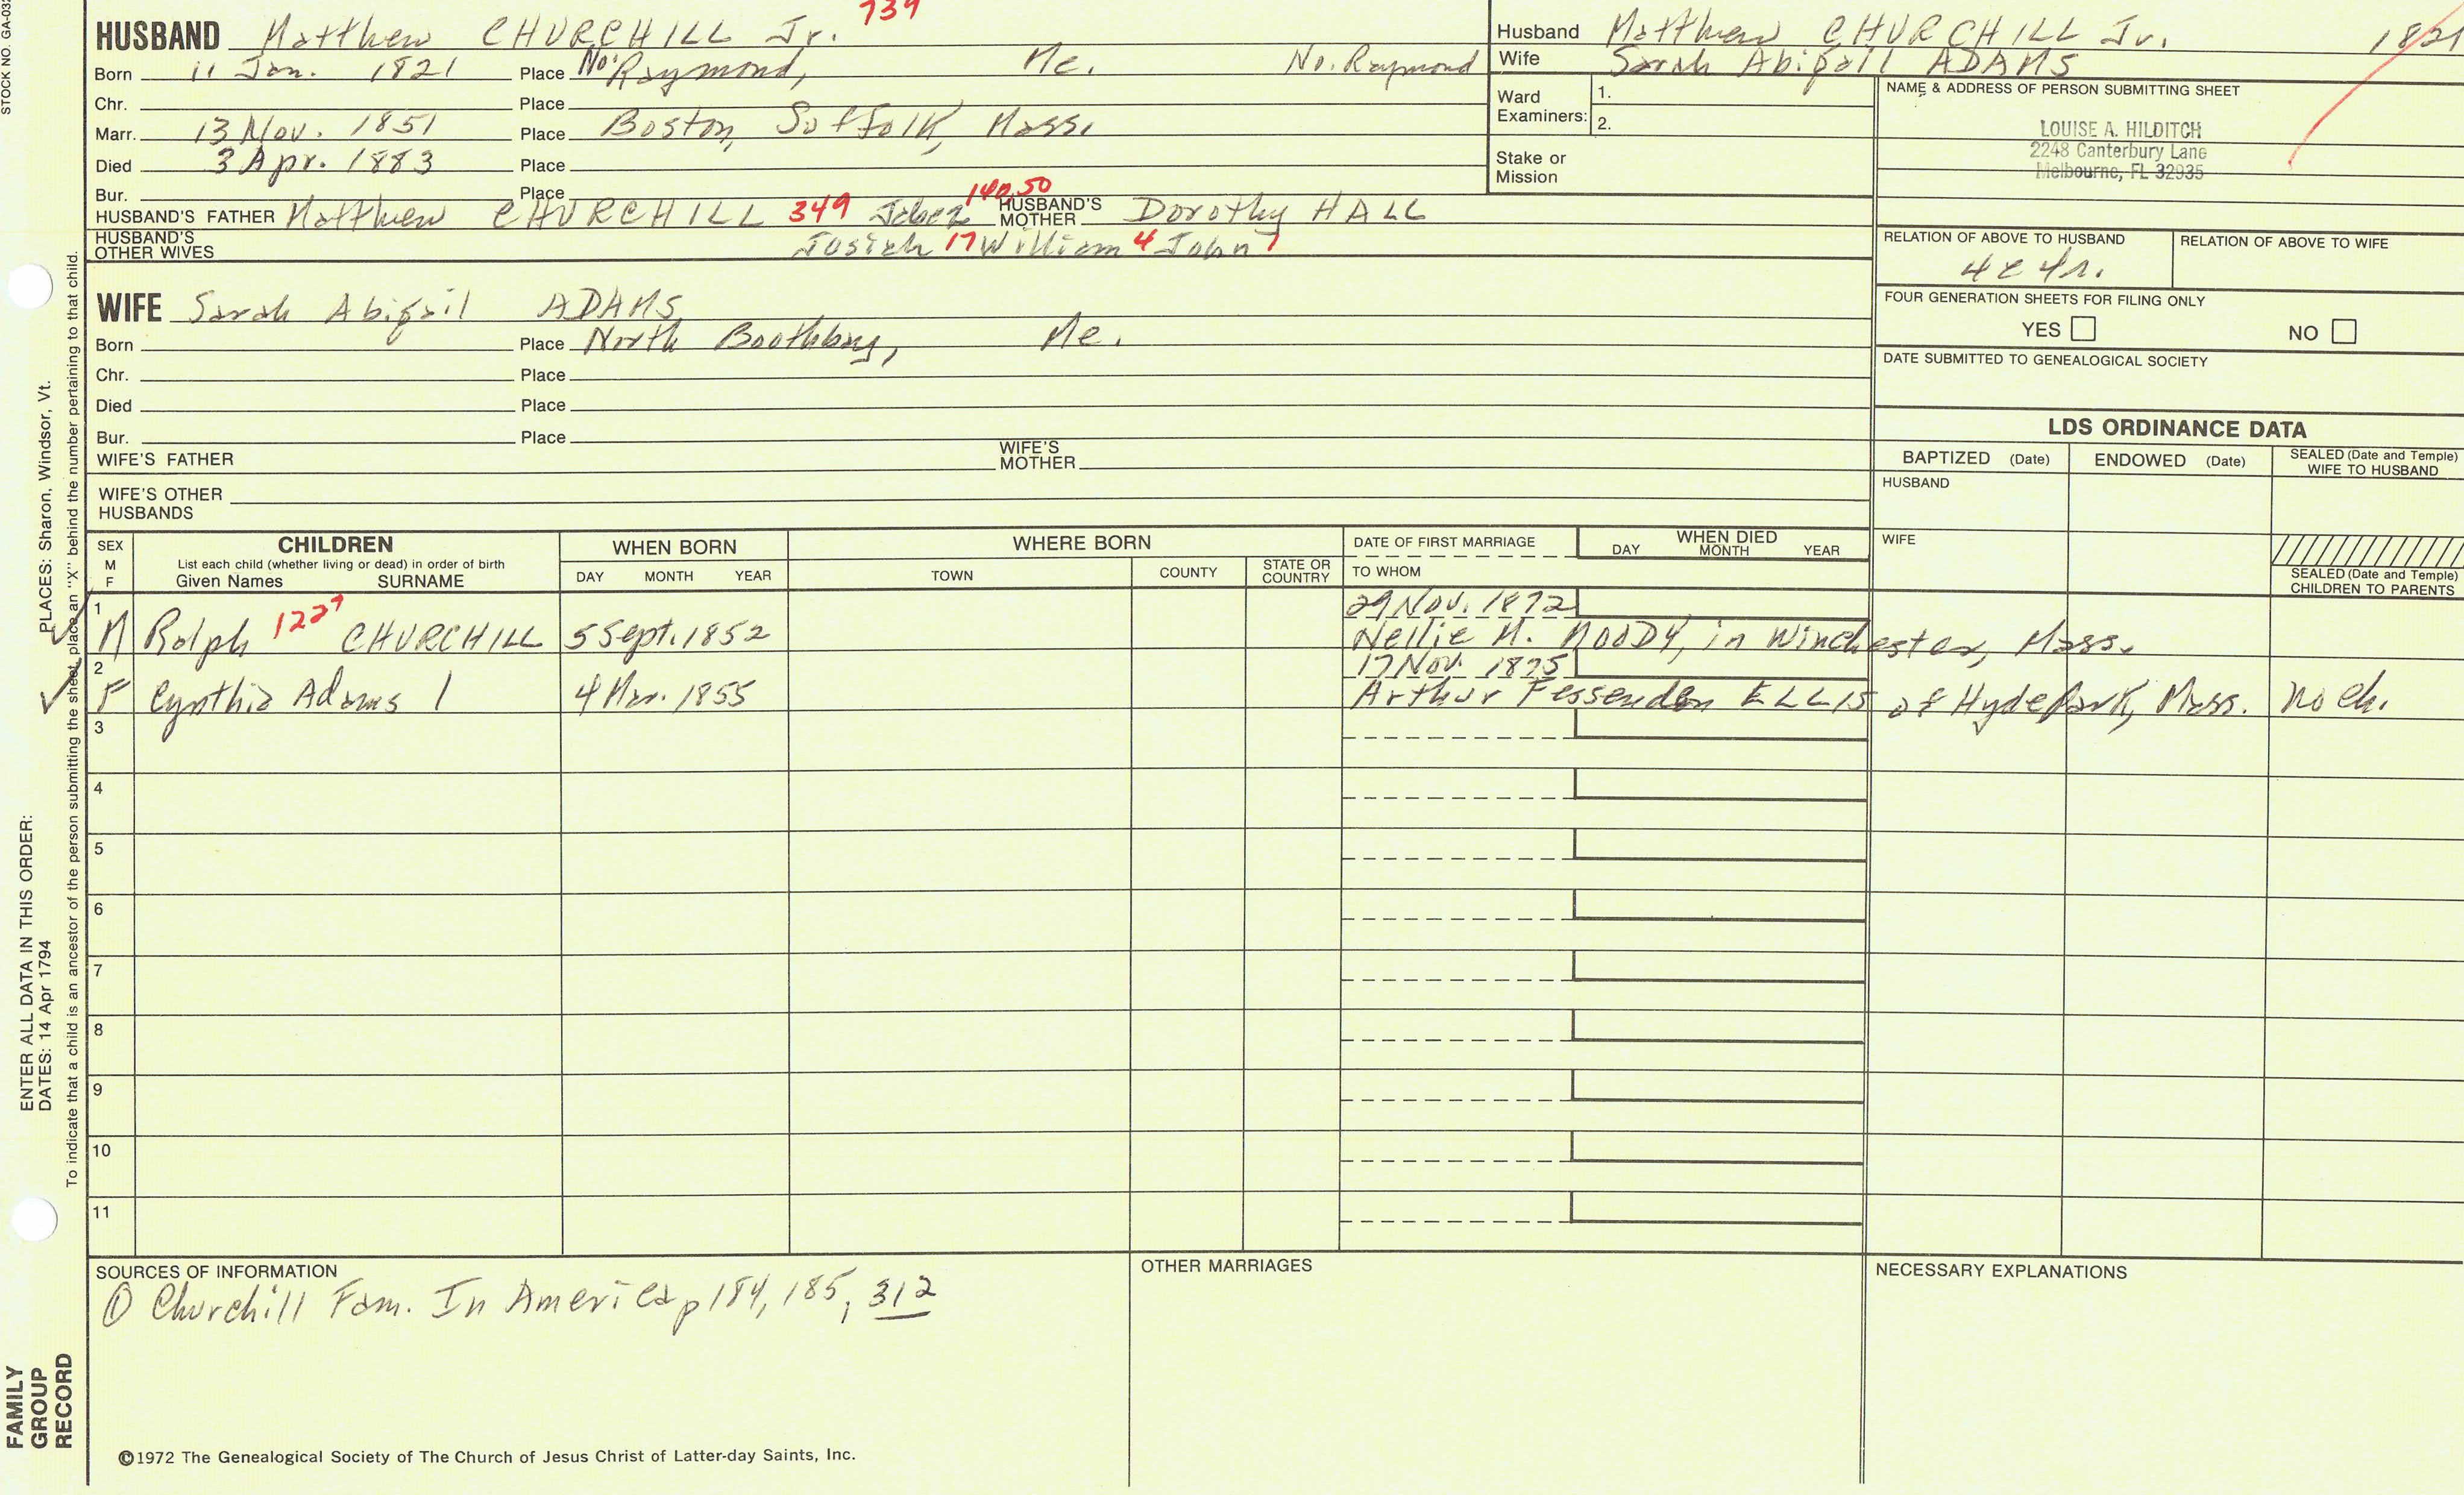 STOCK NO. GA-03
739
HUSBAND Matthew CHURCHILL Jr.
Born 11 Jan. 1821 Place No. Raymond, Me. No. Raymond
Chr. Place
Marr. 13 Nov. 1851 Place Boston, Suffolk, Mass.
Died 3 Apr. 1883 Place
Bur. Place
HUSBAND'S FATHER Matthew CHURCHILL 349 Jabez 140,50 HUSBAND'S MOTHER Dorothy HALL
HUSBAND'S OTHER WIVES Josiah 17 William 4 John 1
Husband Matthew CHURCHILL Jr. 1821
Wife Sarah Abigail ADAMS
Ward Examiners: 1.
2.
Stake or Mission
NAME & ADDRESS OF PERSON SUBMITTING SHEET
LOUISE A. HILDITCH
2248 Canterbury Lane
Melbourne, FL 32935
RELATION OF ABOVE TO HUSBAND RELATION OF ABOVE TO WIFE
4c4r.
FOUR GENERATION SHEETS FOR FILING ONLY
YES NO
DATE SUBMITTED TO GENEALOGICAL SOCIETY
WIFE Sarah Abigail ADAMS
Born Place North Boothbay, Me.
Chr. Place
Died Place
Bur. Place
WIFE'S FATHER WIFE'S MOTHER
WIFE'S OTHER HUSBANDS
LDS ORDINANCE DATA
BAPTIZED (Date) ENDOWED (Date) SEALED (Date and Temple) WIFE TO HUSBAND
HUSBAND
WIFE
SEALED (Date and Temple) CHILDREN TO PARENTS
SEX M F
CHILDREN
List each child (whether living or dead) in order of birth
Given Names SURNAME
WHEN BORN
DAY MONTH YEAR
WHERE BORN
TOWN COUNTY STATE OR COUNTRY
DATE OF FIRST MARRIAGE
TO WHOM
WHEN DIED
DAY MONTH YEAR
29 Nov. 1872
1 M Ralph 1227 CHURCHILL 5 Sept. 1852 Nellie M. MOODY, in Winchester, Mass.
17 Nov. 1875
2 F Cynthia Adams 1 4 Mar. 1855 Arthur Fessenden ELLIS of Hyde Park, Mass. no ch.
3
4
5
6
7
8
9
10
11
SOURCES OF INFORMATION
① Churchill Fam. In America p 184, 185, 312
OTHER MARRIAGES
NECESSARY EXPLANATIONS
©1972 The Genealogical Society of The Church of Jesus Christ of Latter-day Saints, Inc.
FAMILY GROUP RECORD
ENTER ALL DATA IN THIS ORDER:
DATES: 14 Apr 1794 PLACES: Sharon, Windsor, Vt.
To indicate that a child is an ancestor of the person submitting the sheet, place an "X" behind the number pertaining to that child.